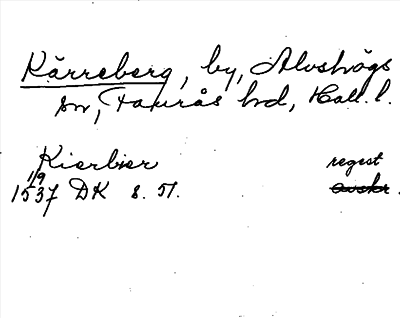 Kärreberg, by, Alvshögs
sn, Faurås hd, Hall. l.
Kierbier regest
1/9
1537 DK s. 51. avskr.